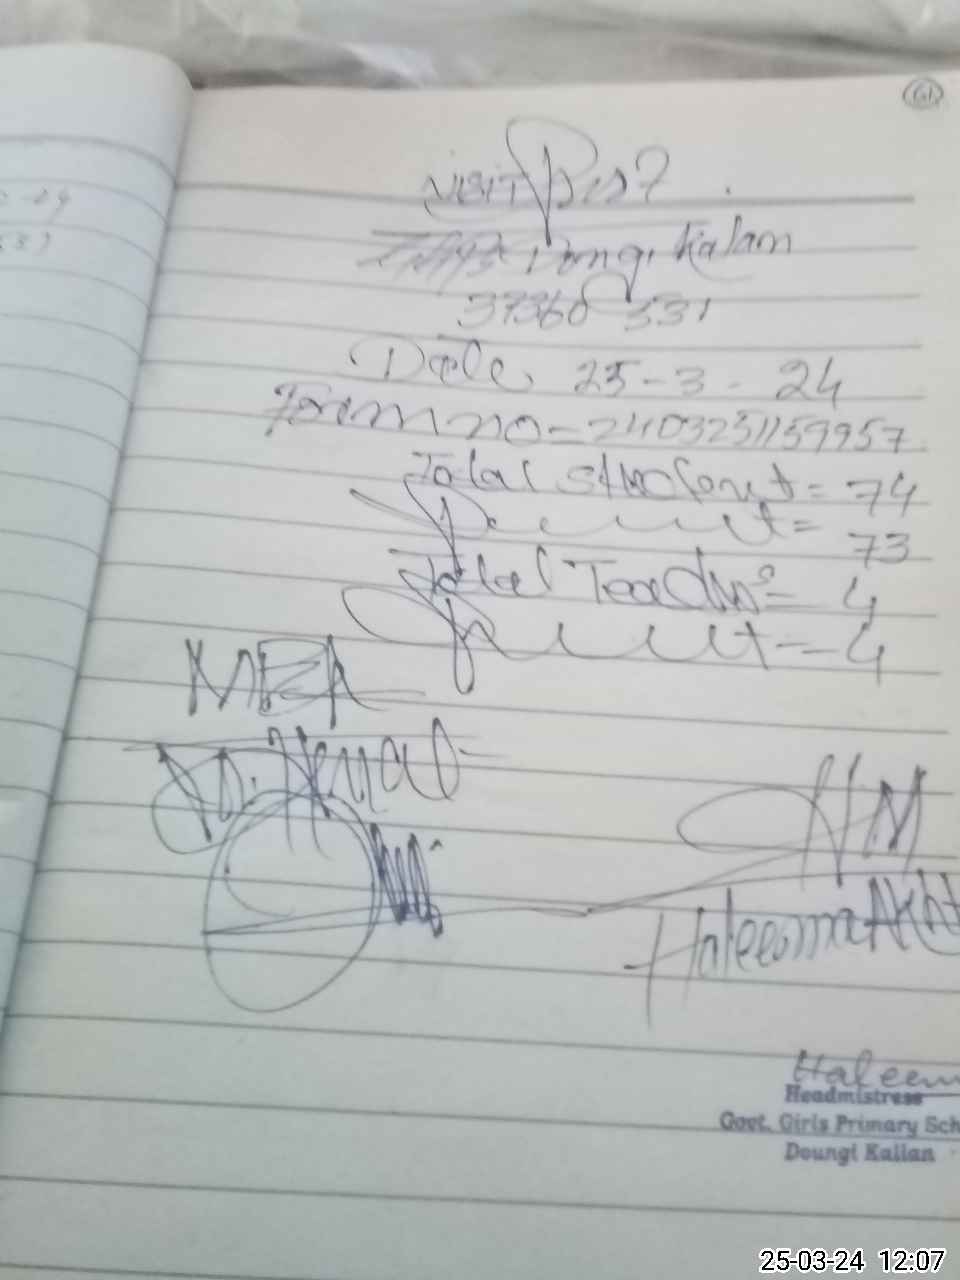 61
Visit
Dongi Kalam
37360 331
Date 25-3-24
Form no = 2403251159957
Total student = 74
Present = 73
Total Teachers = 4
Present = 4
MEA
HM
Haleema Akht
Haleem
Headmistress
Govt. Girls Primary Sch
Doungi Kallan
25-03-24 12:07